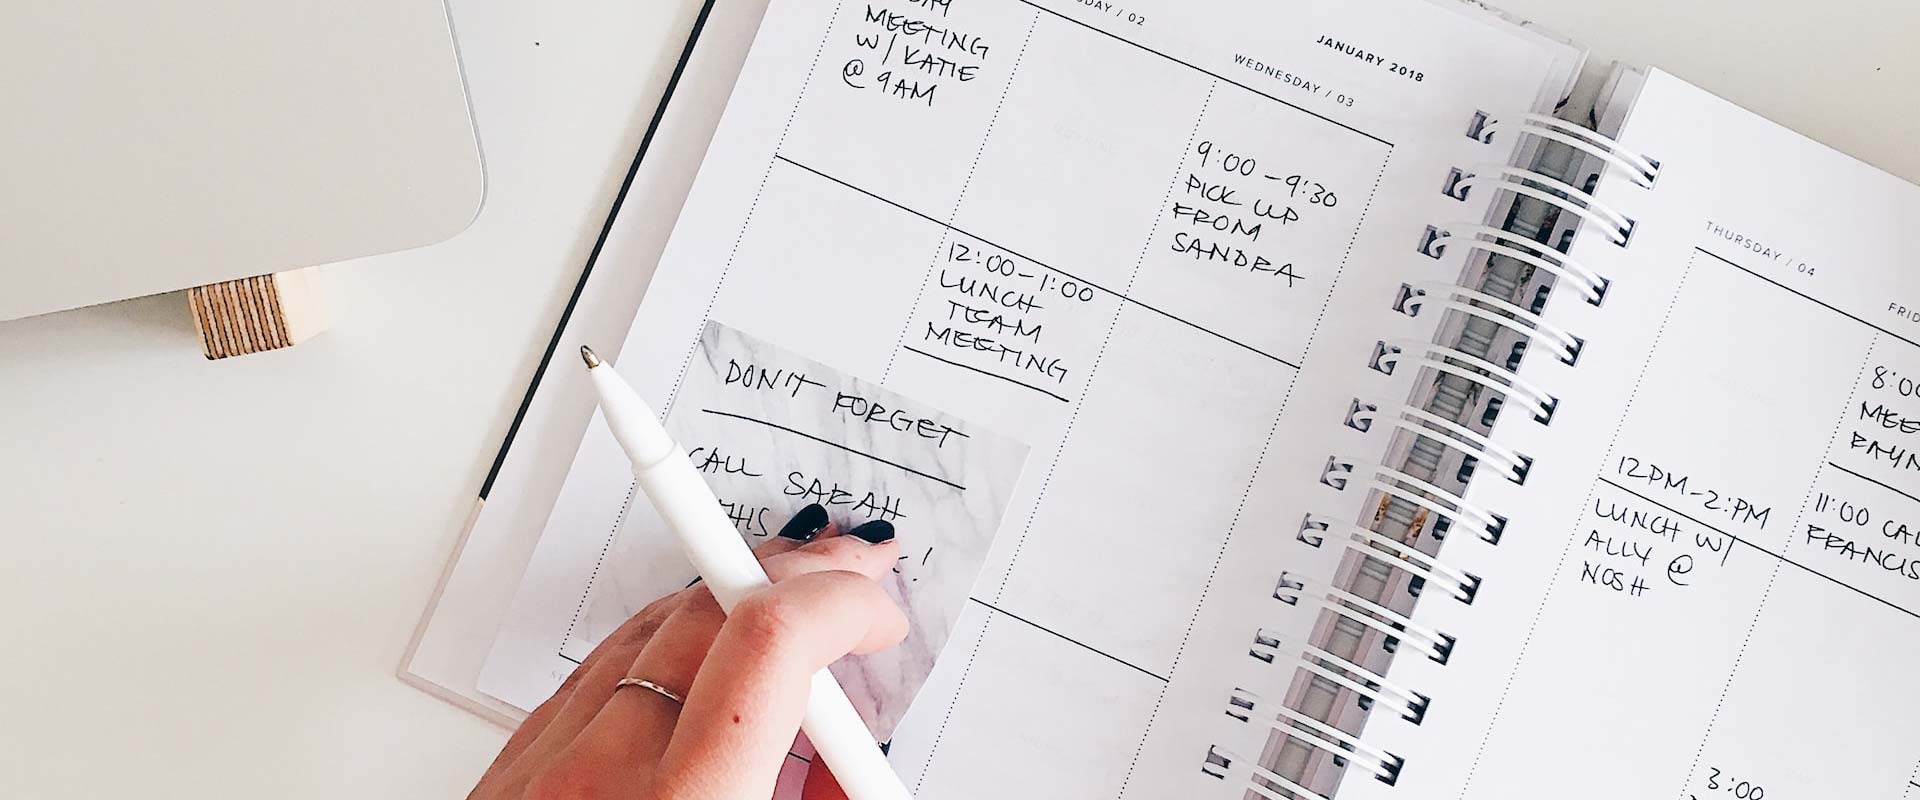 MEETING
W/ KATIE
@ 9AM
/ 02
JANUARY 2018
WEDNESDAY / 03
9:00-9:30
PICK UP
FROM
SANDRA
12:00-1:00
LUNCH
TEAM
MEETING
DON'T FORGET
CALL SARAH
THIS
THURSDAY / 04
12PM-2:PM
LUNCH W/
ALLY @
NOSH
8:00
11:00
FRANCIS
3:00